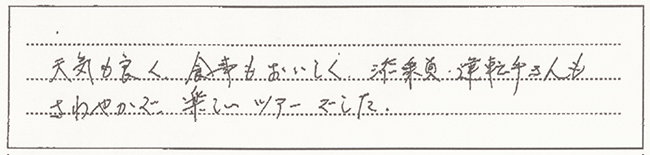 天気も良く、食事もおいしく、添乗員・運転手さんも
さわやかで、楽しいツアーでした.